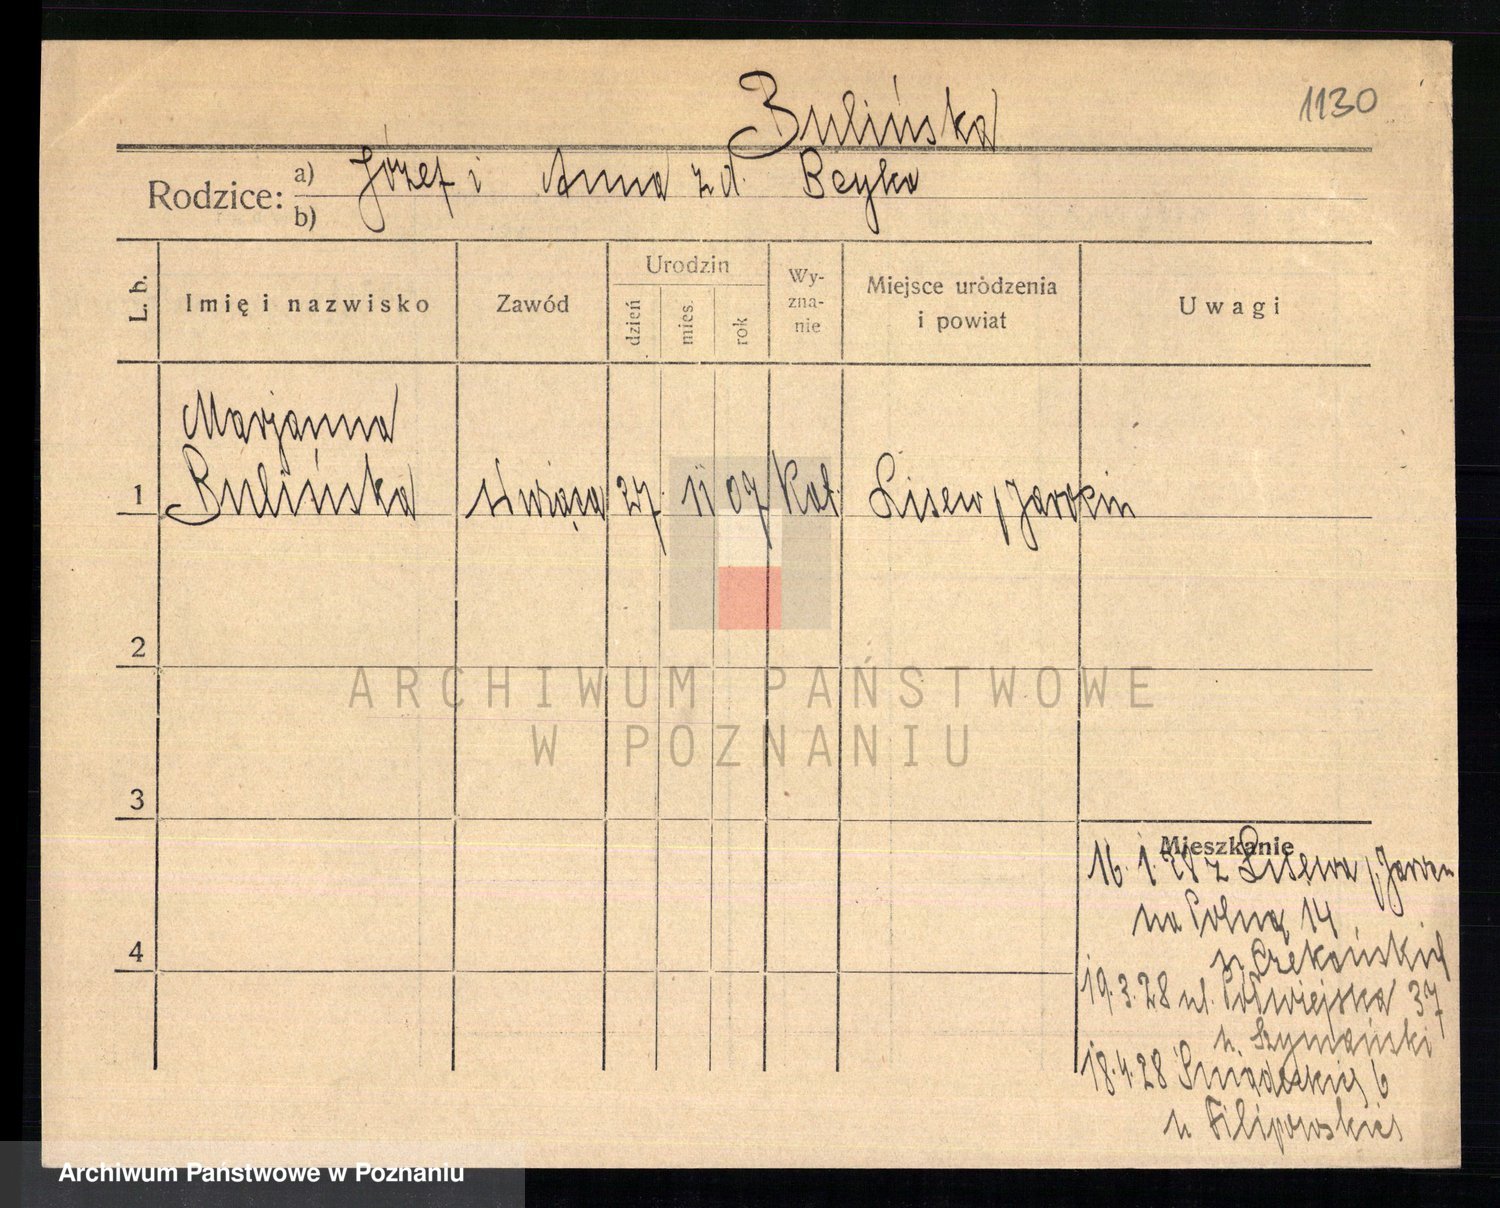 1130
Bulińska
Rodzice: a) Józef i Anna z d. Beyka
b)
L. b. Imię i nazwisko Zawód Urodzin dzień mies. rok Wy-zna-nie Miejsce urodzenia i powiat Uwagi
Marjanna
1 Bulińska służąca 27. 11 07 Kat. Lisew p/Jarocin
2
3
4
Mieszkanie
16. 1. 28 z Lisewa p/.
na Polną 14
u.
19. 3. 28 ul. Półwiejska 37
u. Szymański
18. 4. 28 Śniadeckich 6
u Filipowskiej
ARCHIWUM PAŃSTWOWE
W POZNANIU
Archiwum Państwowe w Poznaniu